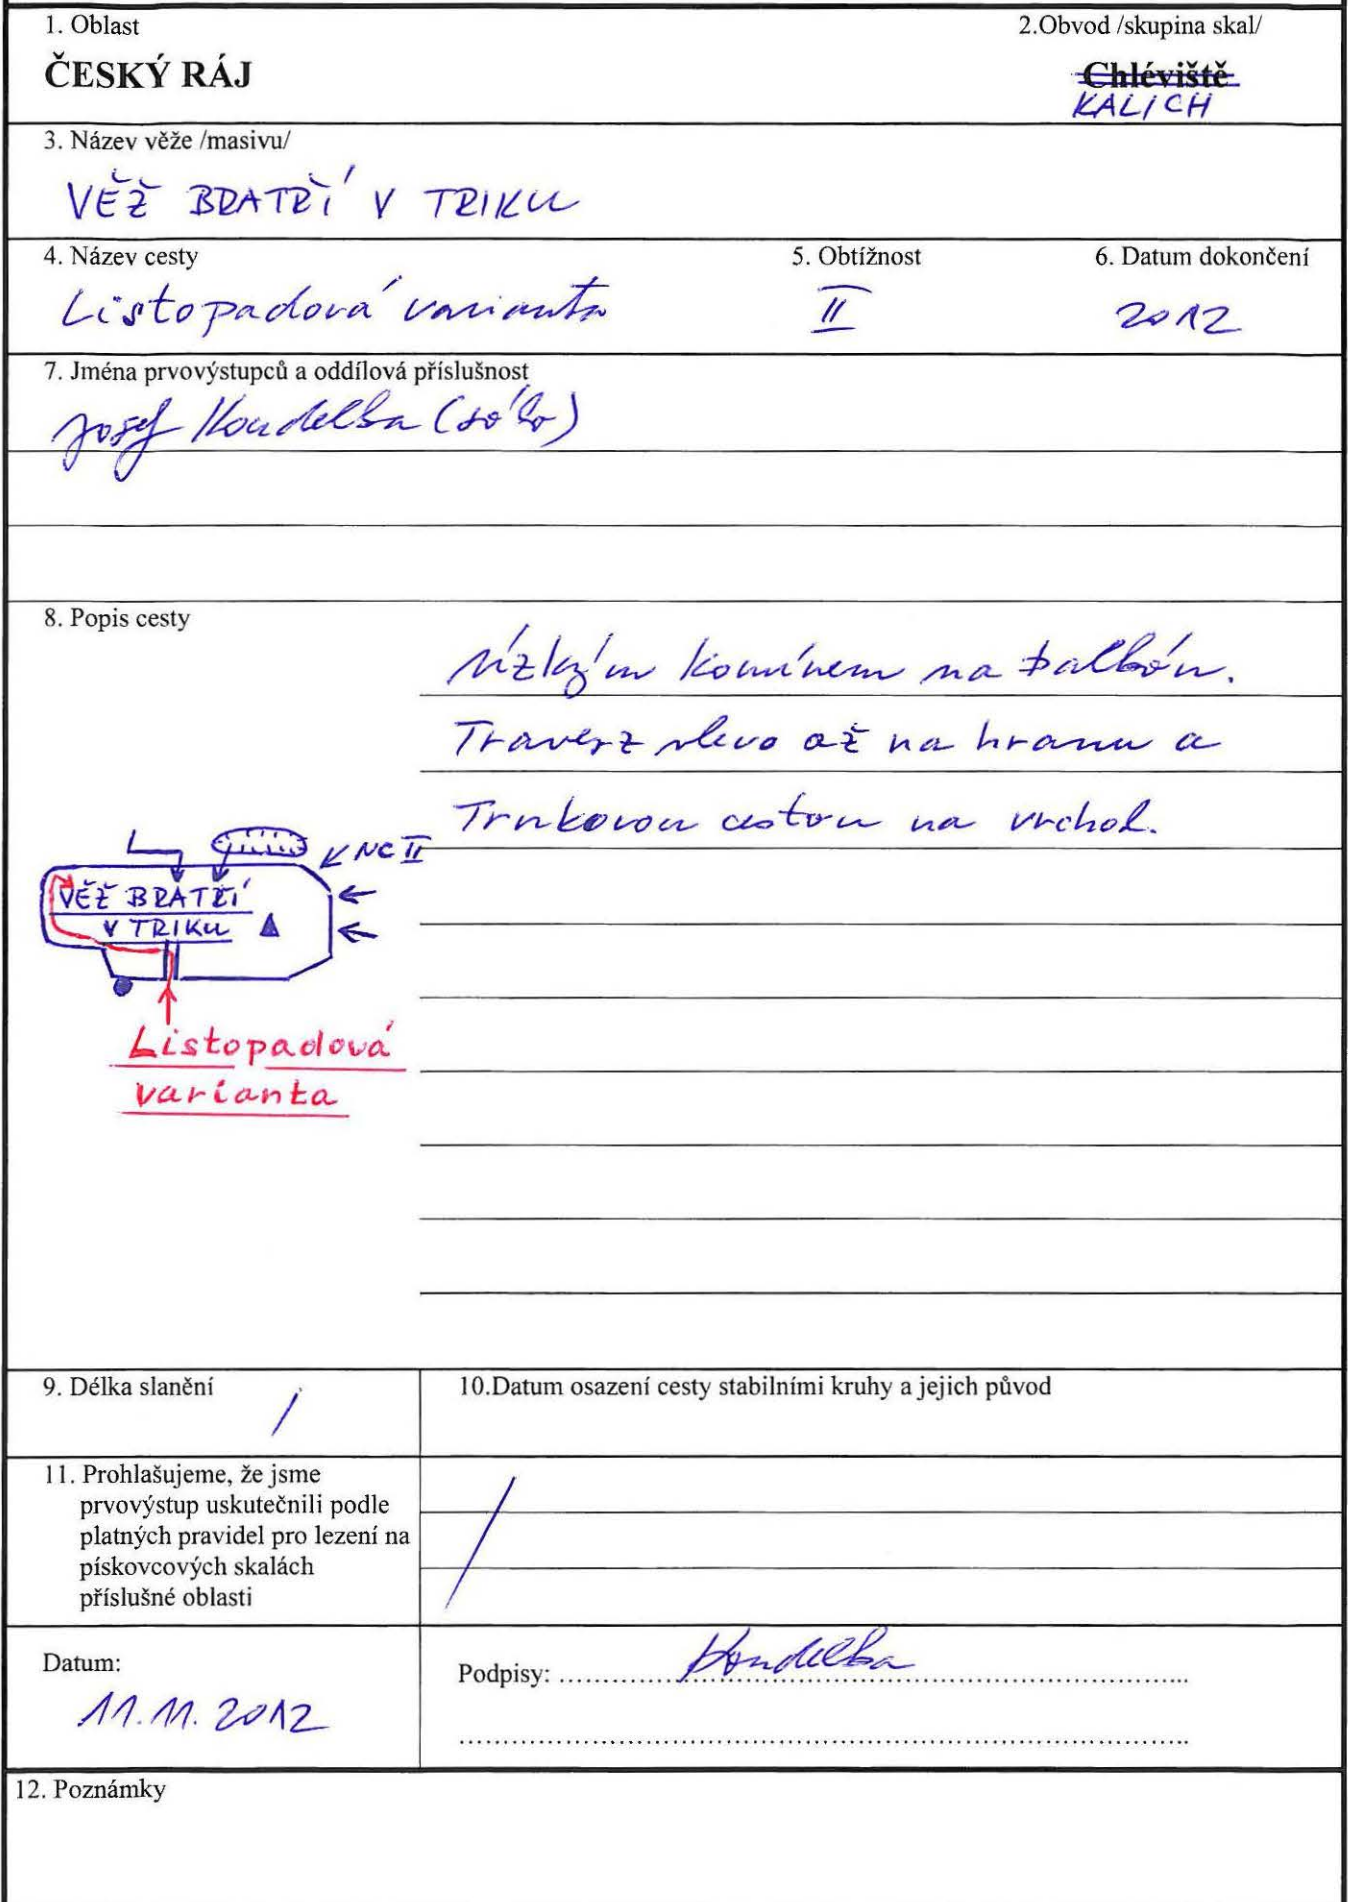 1. Oblast
2.Obvod /skupina skal/
ČESKÝ RÁJ
Chléviště
KALICH
3. Název věže /masivu/
VĚŽ BRATŘÍ V TRIKU
4. Název cesty
5. Obtížnost
6. Datum dokončení
Listopadová varianta
II
2012
7. Jména prvovýstupců a oddílová příslušnost
Josef Koudelka (sólo)
8. Popis cesty
Nízkým komínem na balkón.
Traverz vlevo až na hranu a
Trnkovou cestou na vrchol.
NC II
VĚŽ BRATŘÍ
V TRIKU
Listopadová
varianta
9. Délka slanění
/
10.Datum osazení cesty stabilními kruhy a jejich původ
/
11. Prohlašujeme, že jsme
prvovýstup uskutečnili podle
platných pravidel pro lezení na
pískovcových skalách
příslušné oblasti
Datum:
11.11.2012
Podpisy: Koudelka
12. Poznámky